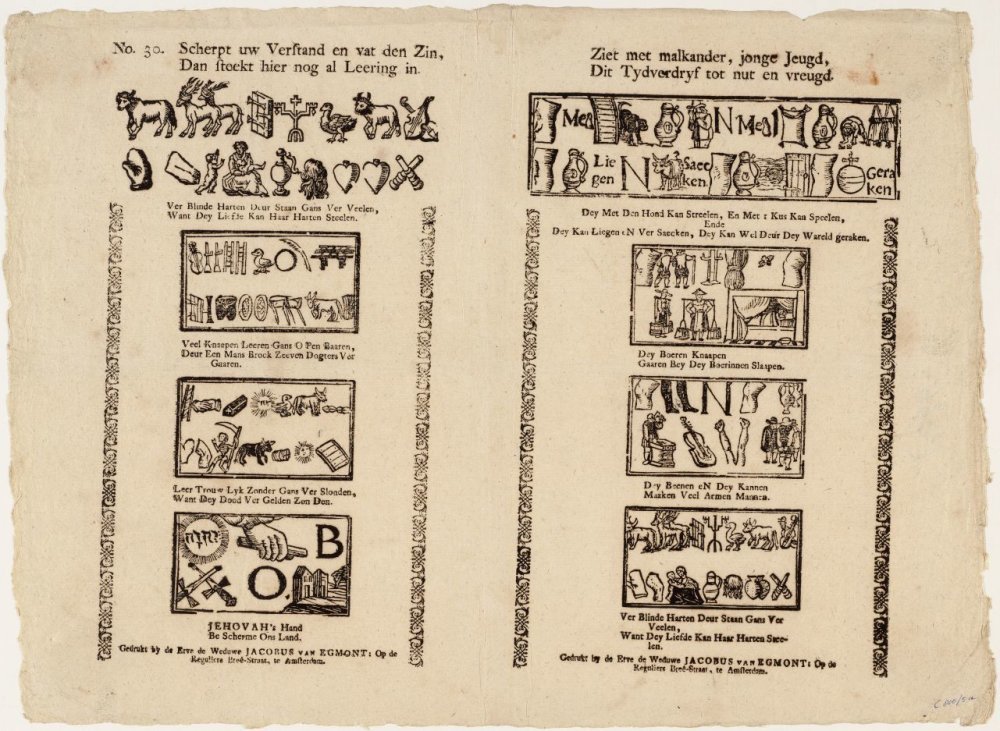 No. 30. Scherpt uw Verstand en vat den Zin,
Dan steekt hier nog al Leering in.
Ver Blinde Harten Deur Staan Gans Ver Veelen,
Want Dey Liefde Kan Haar Harten Steelen.
Veel Knaepen Leeren Gans O Pen Baaren,
Deur Een Mans Broek Zeeven Dogters Ver
Gaaren.
Leer Trouw Lyk Zonder Gans Ver Slonden,
Want Dey Dood Ver Gelden Zon Don.
יהוה
B
O.
JEHOVAH's Hand
Be Scherme Ons Land.
Gedrukt by de Erve de Weduwe JACOBUS VAN EGMONT: Op de
Reguliers Breê-Straat, te Amsterdam.
Ziet met malkander, jonge Jeugd,
Dit Tydverdryf tot nut en vreugd.
Med N Med
Lie
gen N Saec
ken Gera
ken
Dey Met Den Hond Kan Streelen, En Met t Kus Kan Speelen,
Ende
Dey Kan Liegen eN Ver Saecken, Dey Kan Wel Deur Dey Wareld geraken.
Dey Boeren Knaapen
Gaaren Bey Dey Boerinnen Slaapen.
N
Dey Beenen eN Dey Kannen
Maaken Veel Armen Mannen.
Ver Blinde Harten Deur Staan Gans Ver
Veelen,
Want Dey Liefde Kan Haar Harten Stee-
len.
Gedrukt by de Erve de Weduwe JACOBUS VAN EGMONT: Op de
Reguliers Breê-Straat, te Amsterdam.